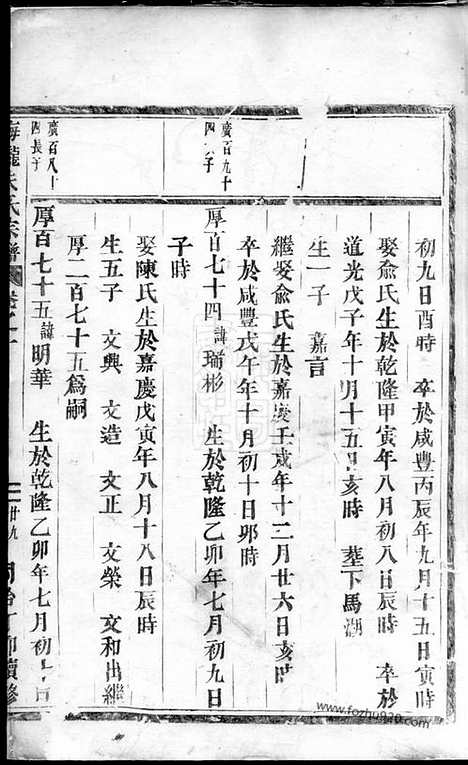 初九日酉時 卒於咸豐丙辰年九月十五日寅時
娶俞氏生於乾隆甲寅年八月初八日辰時 卒於
道光戊子年十月十五日亥時 塟下馬湖
生一子 嘉言
繼娶俞氏生於嘉慶壬戌年十二月廿六日亥時
卒於咸豐戊午年十月初十日卯時
廣百九十
四 子
厚百七十四諱瑞彬 生於乾隆乙卯年七月初九日
子時
娶陳氏生於嘉慶戊寅年八月十八日辰時
生五子 文興 文造 文正 文榮 文和出繼
厚二百七十五爲嗣
廣百八十
四長子
厚百七十五諱明華 生於乾隆乙卯年七月初 日
氏宗譜 廿九 續修
www.fozhu920.com